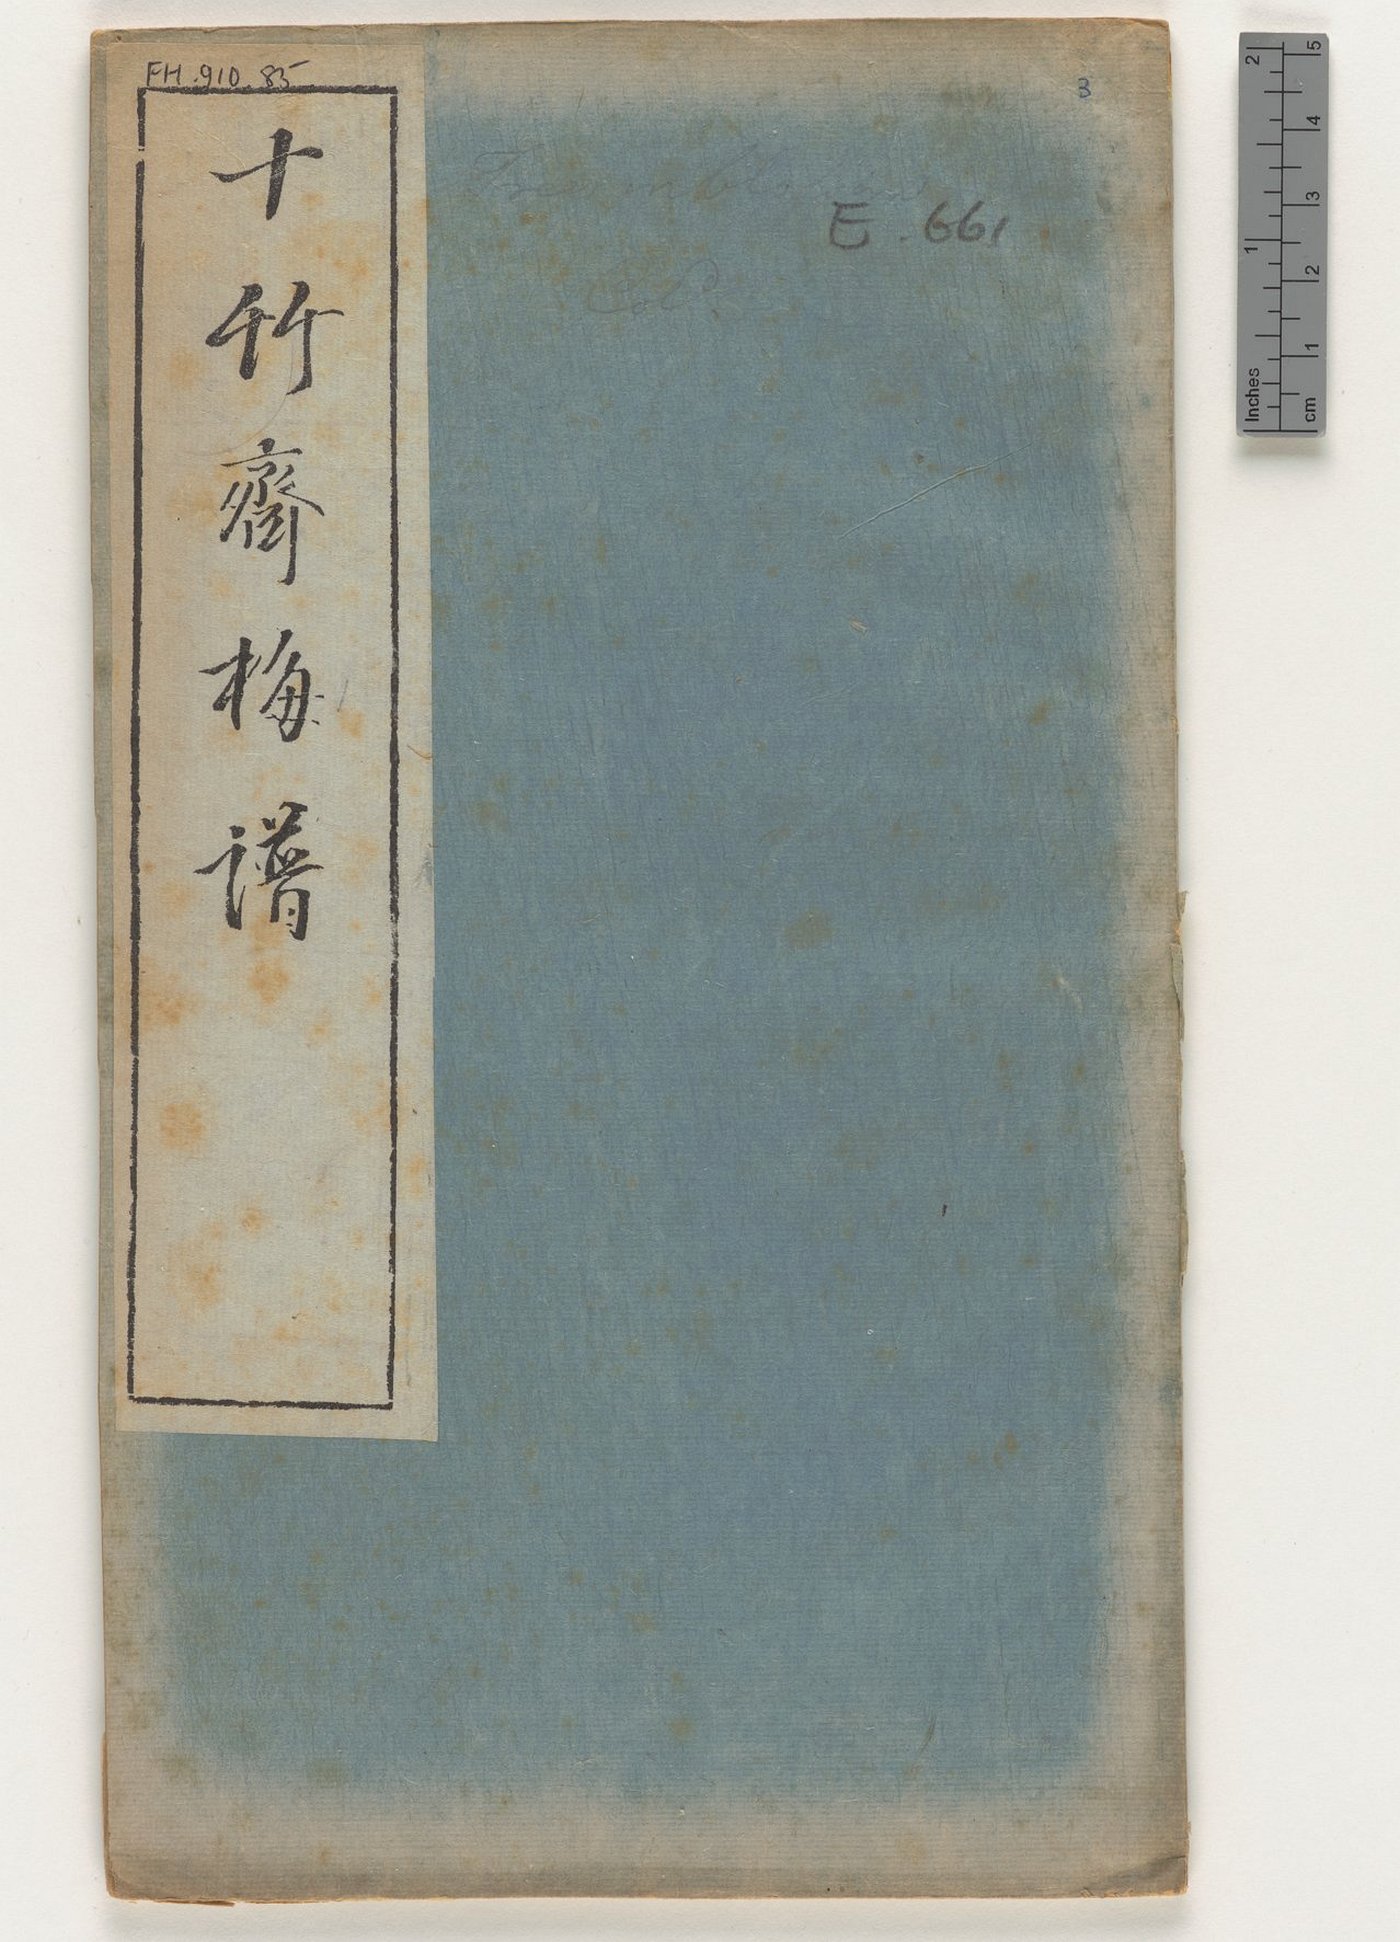 FH.910.85
十竹齋梅譜
E.661
Inches
1
2
cm
1
2
3
4
5